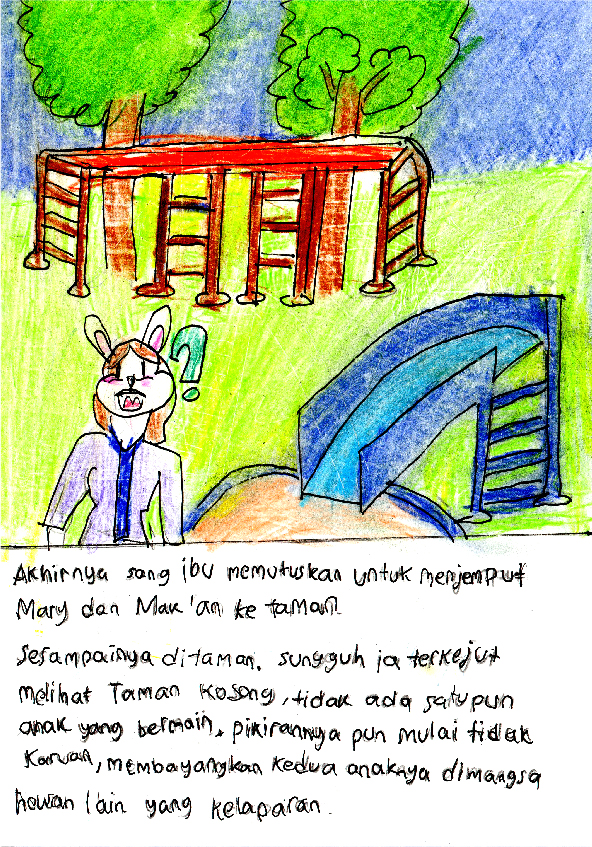 ?
Akhirnya sang ibu memutuskan untuk menjemput
Mary dan Mak'an ke taman.
Sesampainya ditaman, sungguh ia terkejut
melihat Taman Kosong, tidak ada satupun
anak yang bermain, pikirannya pun mulai tidak
Karuan, membayangkan kedua anaknya dimangsa
hewan lain yang kelaparan.